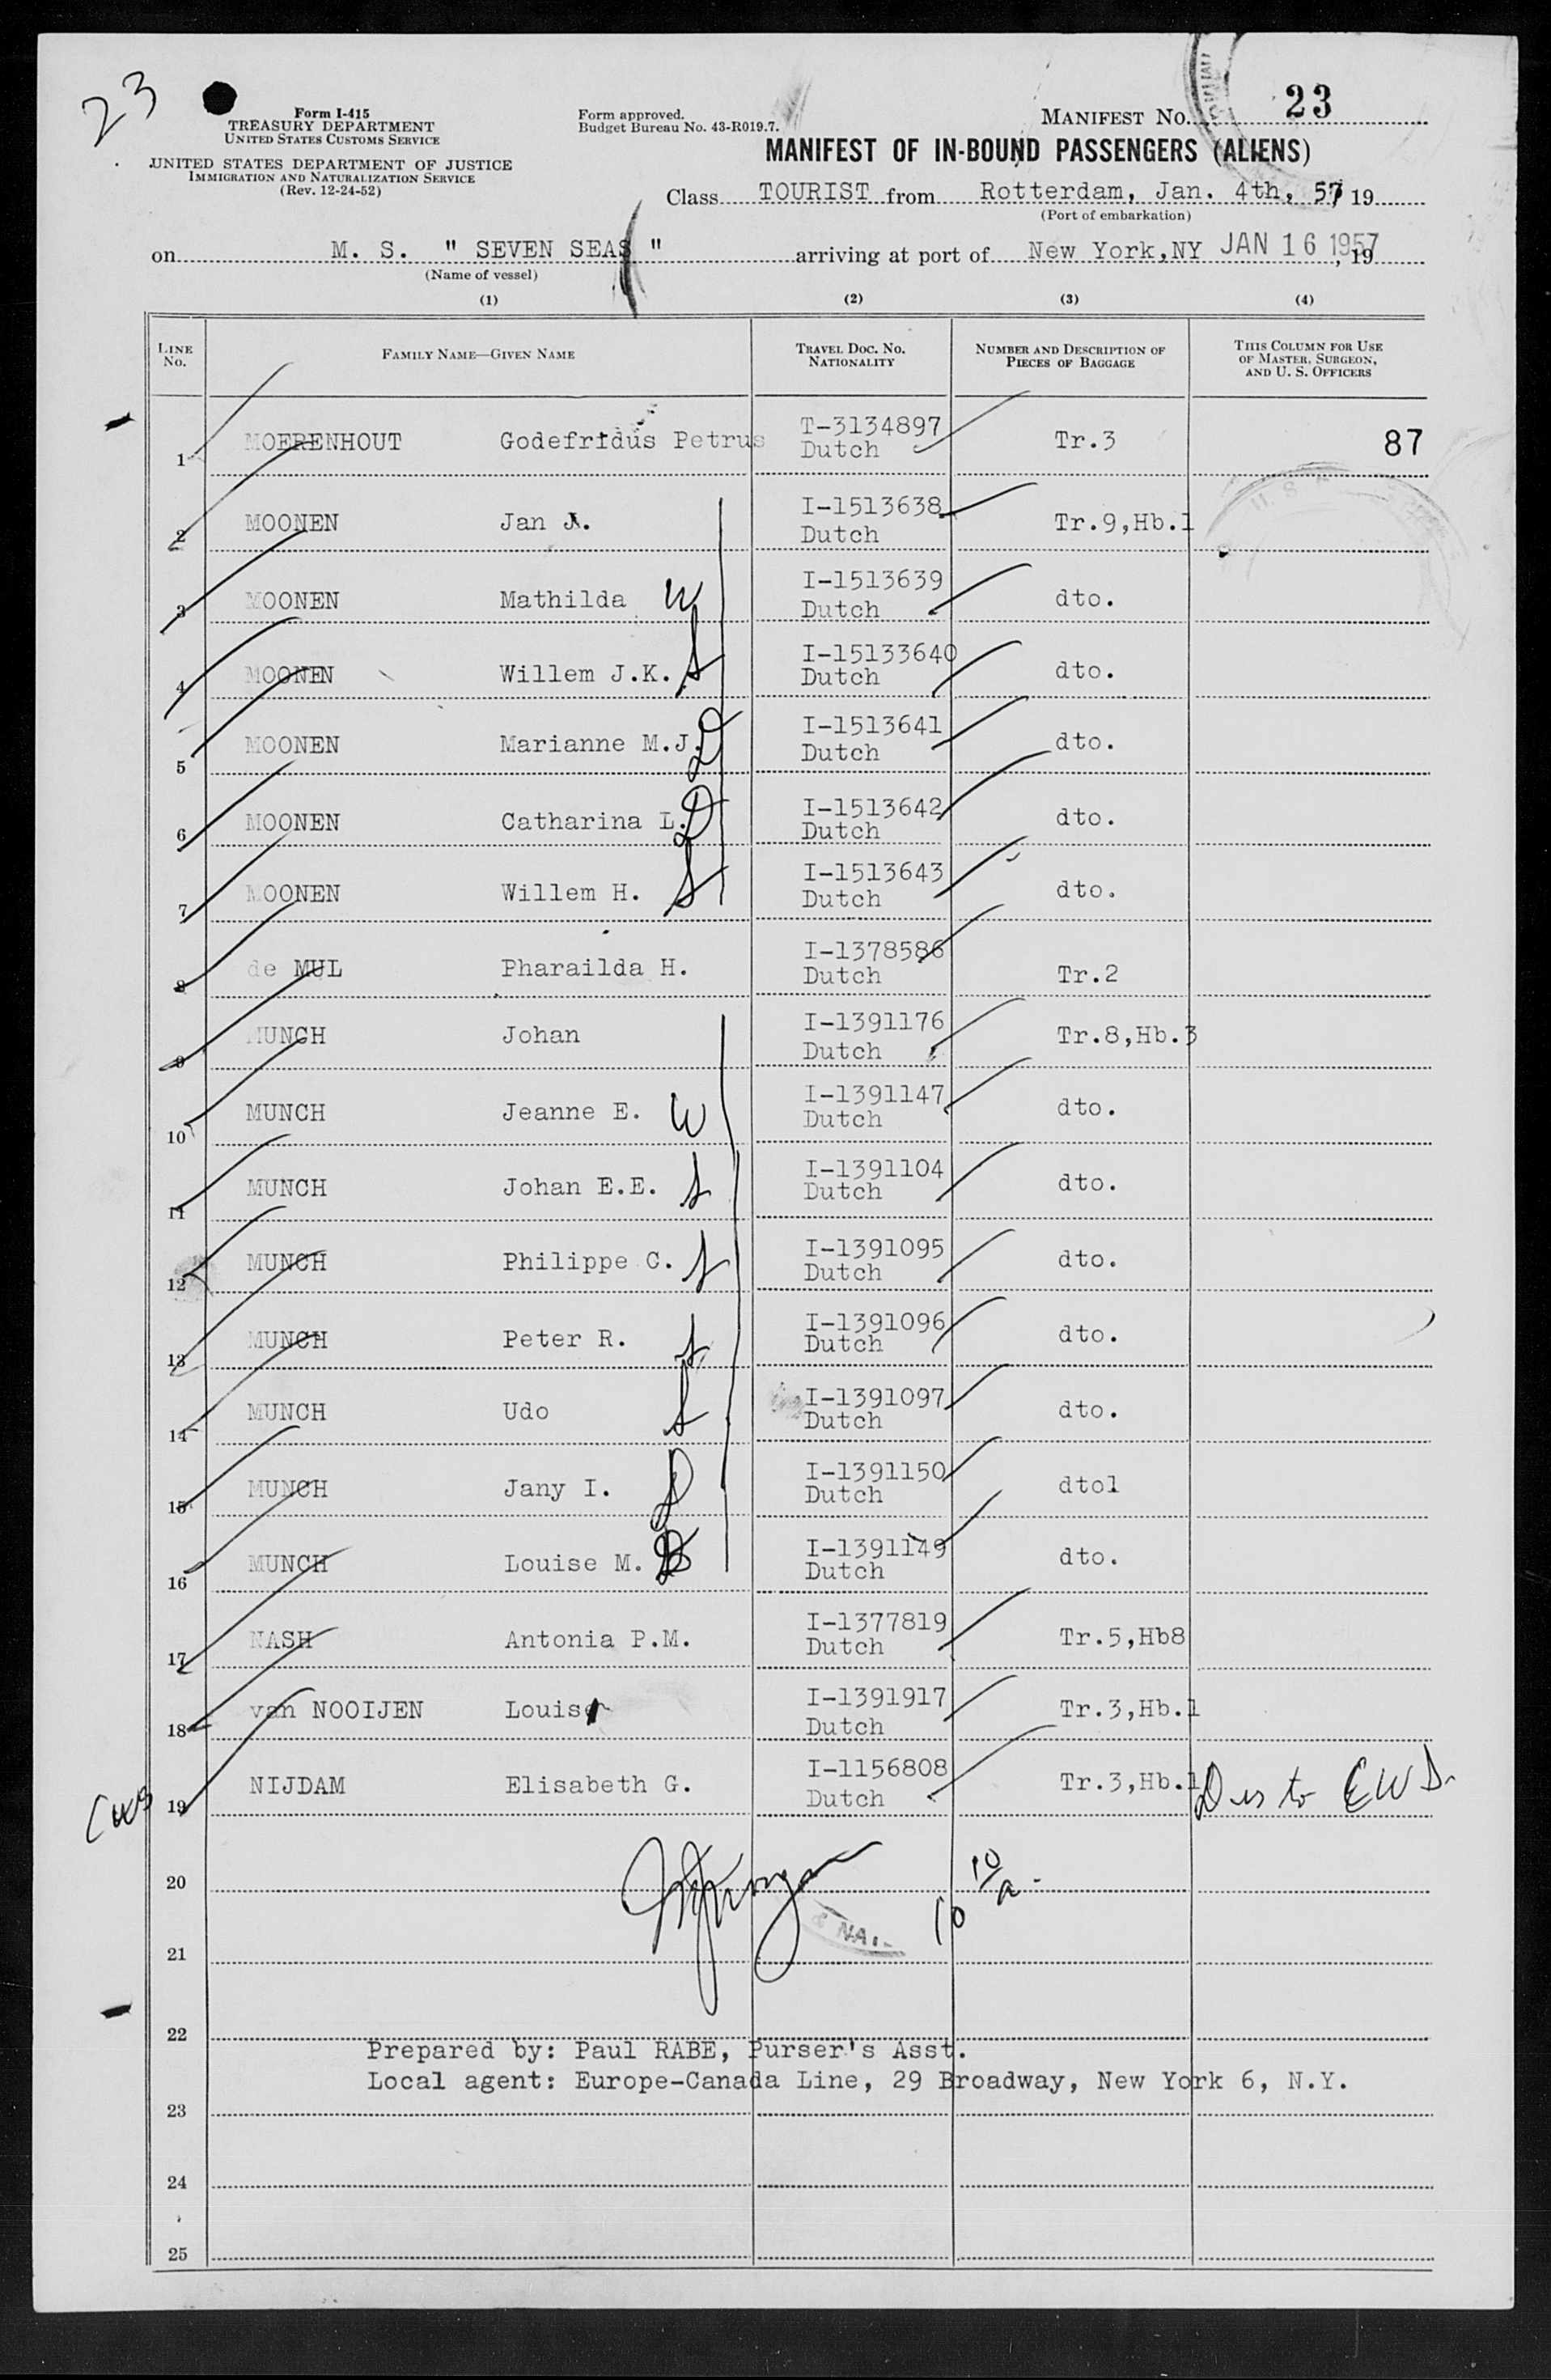 23
Form I-415
TREASURY DEPARTMENT
UNITED STATES CUSTOMS SERVICE
UNITED STATES DEPARTMENT OF JUSTICE
IMMIGRATION AND NATURALIZATION SERVICE
(Rev. 12-24-52)
Form approved.
Budget Bureau No. 43-R019.7.
MANIFEST No. 23
MANIFEST OF IN-BOUND PASSENGERS (ALIENS)
Class TOURIST from Rotterdam, Jan. 4th, 57 19
(Port of embarkation)
on M. S. " SEVEN SEAS " arriving at port of New York,NY JAN 16 1957, 19
(Name of vessel)
(1) (2) (3) (4)
LINE No. FAMILY NAME—GIVEN NAME TRAVEL DOC. NO. NATIONALITY NUMBER AND DESCRIPTION OF PIECES OF BAGGAGE THIS COLUMN FOR USE OF MASTER, SURGEON, AND U. S. OFFICERS
1 MOERENHOUT Godefridus Petrus T-3134897 Dutch Tr.3 87
2 MOONEN Jan I-1513638 Dutch Tr.9,Hb.1
3 MOONEN Mathilda W I-1513639 Dutch dto.
4 MOONEN Willem J.K. S I-15133640 Dutch dto.
5 MOONEN Marianne M.J. D I-1513641 Dutch dto.
6 MOONEN Catharina L. D I-1513642 Dutch dto.
7 MOONEN Willem H. S I-1513643 Dutch dto.
8 de MUL Pharailda H. I-1378586 Dutch Tr.2
9 MUNCH Johan I-1391176 Dutch Tr.8,Hb.3
10 MUNCH Jeanne E. W I-1391147 Dutch dto.
11 MUNCH Johan E.E. S I-1391104 Dutch dto.
12 MUNCH Philippe C. S I-1391095 Dutch dto.
13 MUNCH Peter R. S I-1391096 Dutch dto.
14 MUNCH Udo S I-1391097 Dutch dto.
15 MUNCH Jany I. D I-1391150 Dutch dtol
16 MUNCH Louise M. D I-1391149 Dutch dto.
17 NASH Antonia P.M. I-1377819 Dutch Tr.5,Hb8
18 van NOOIJEN Louis I-1391917 Dutch Tr.3,Hb.1
19 NIJDAM Elisabeth G. I-1156808 Dutch Tr.3,Hb.1
20
& NA
21
22
Prepared by: Paul RABE, Purser's Asst.
Local agent: Europe-Canada Line, 29 Broadway, New York 6, N.Y.
23
24
25